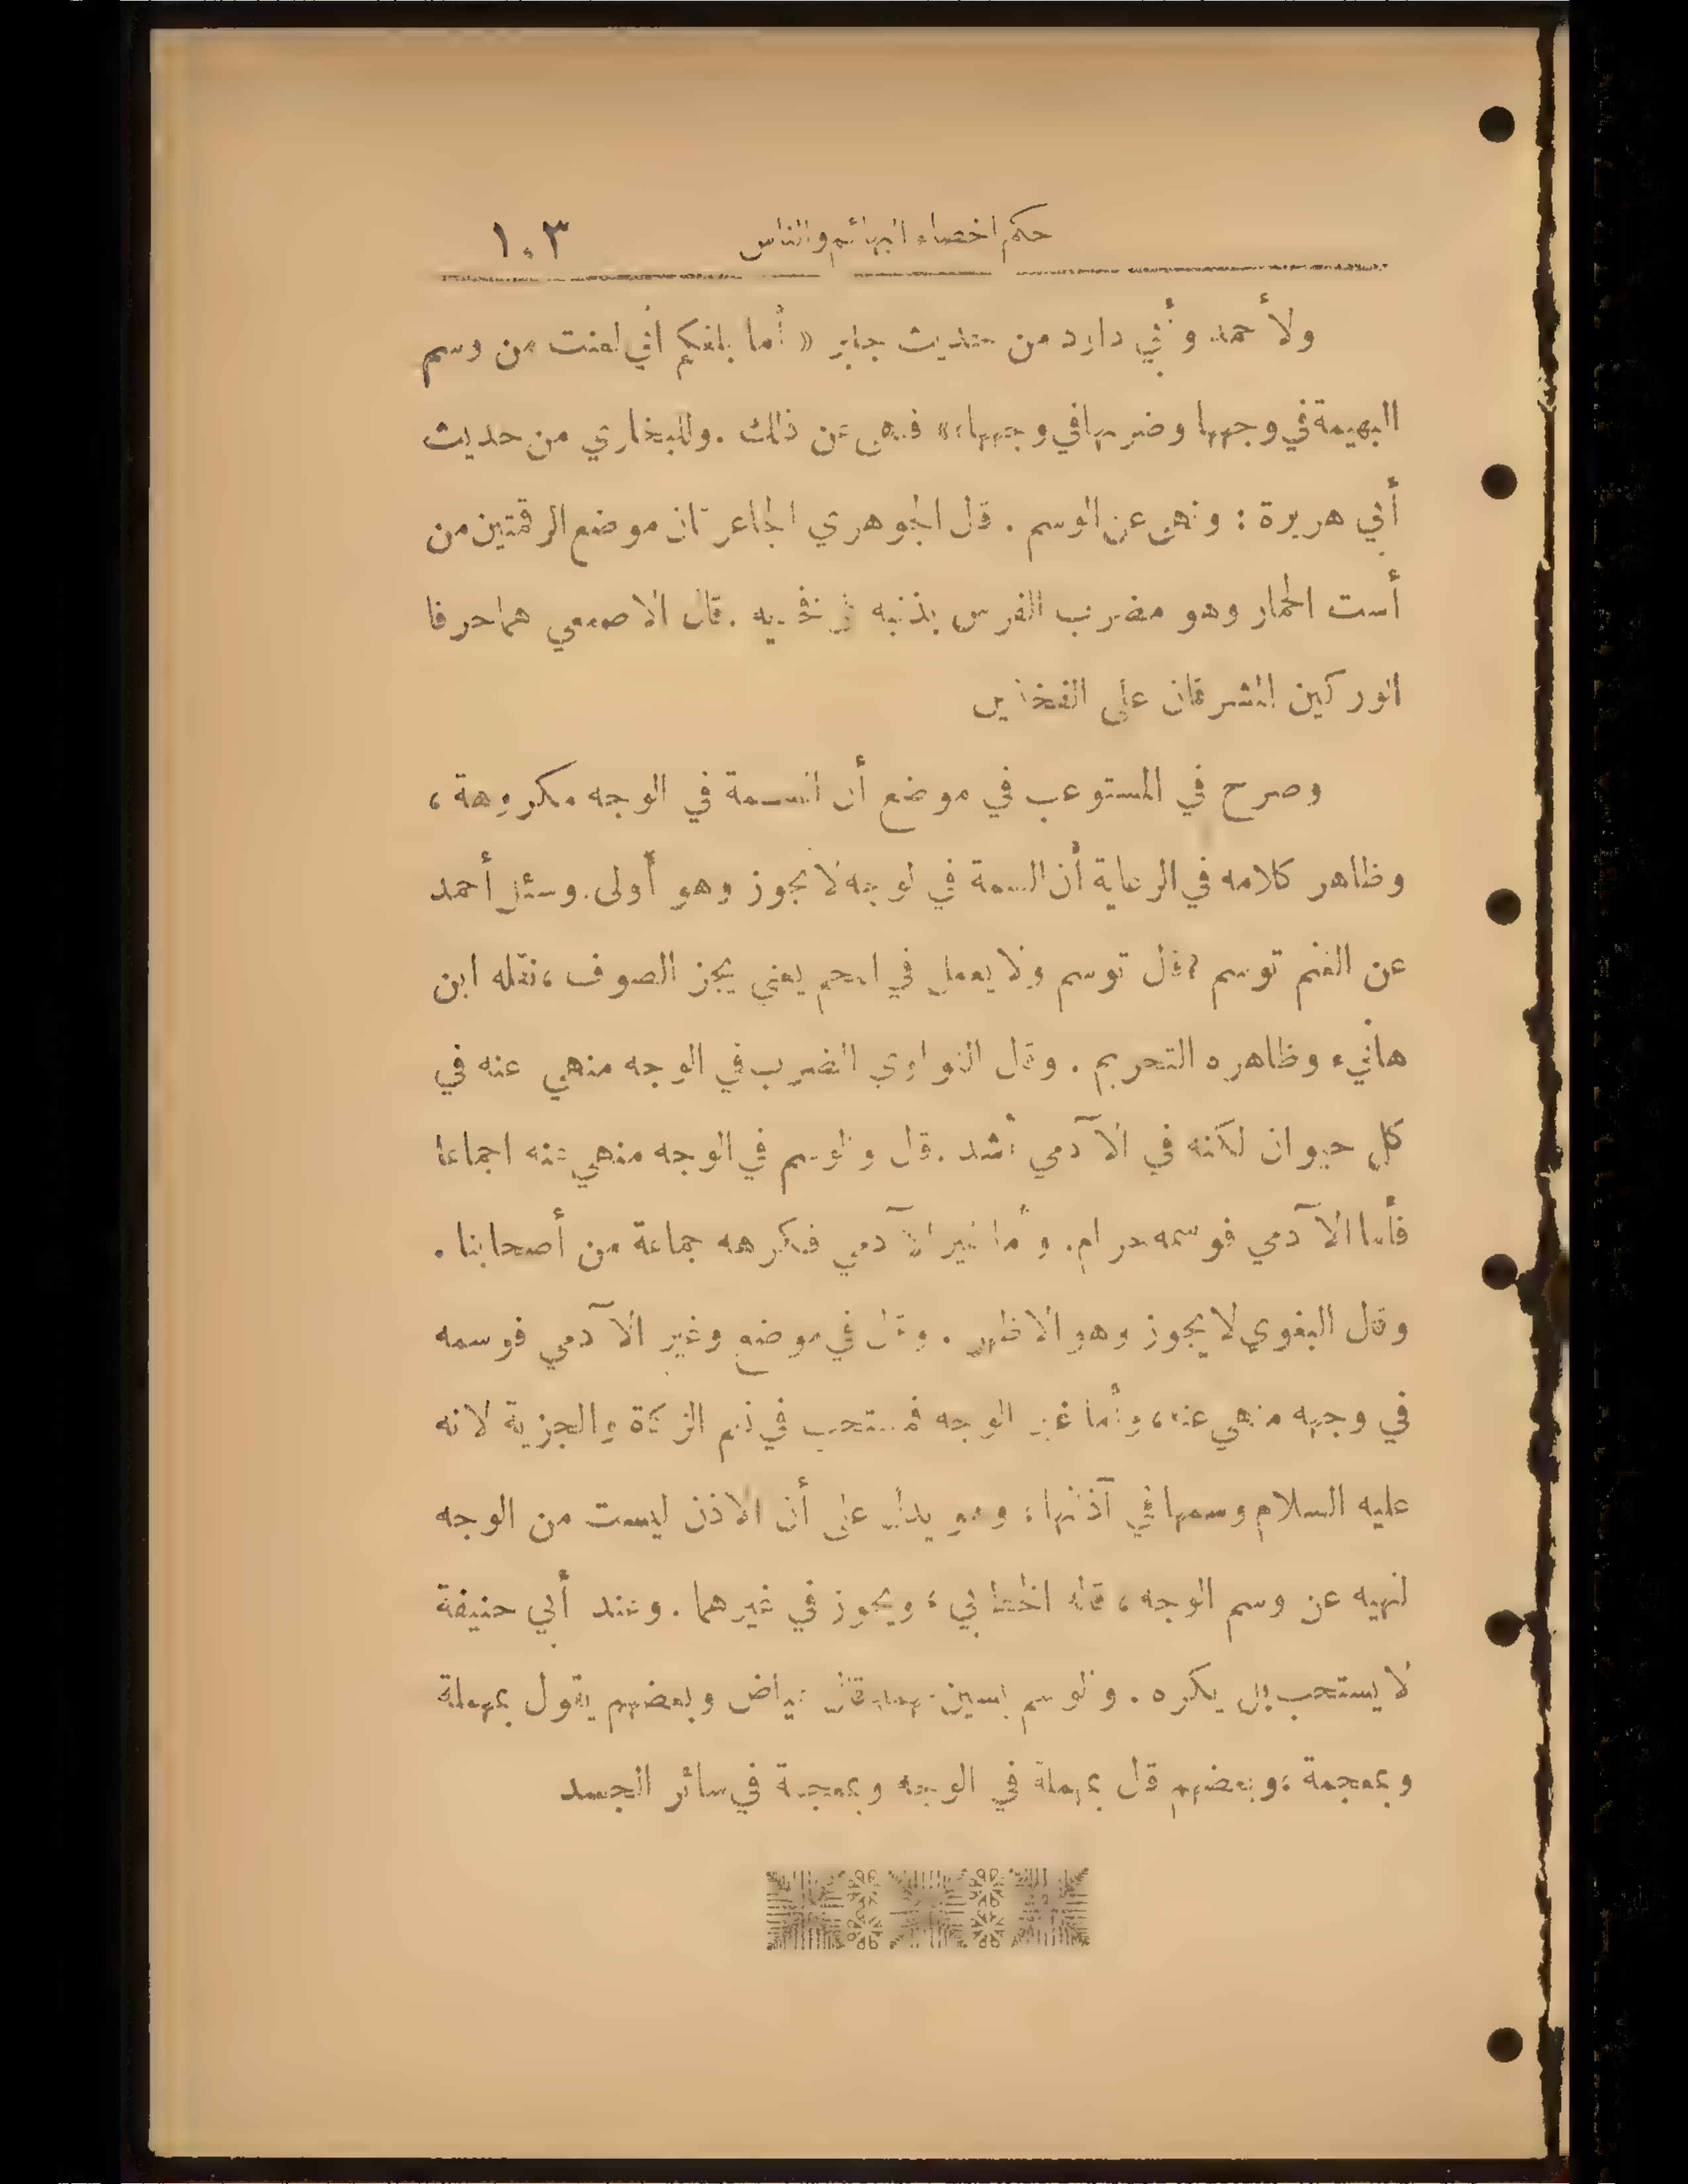 حكم اخصاء البهائم والناس ١٠٣
ولأحمد وأبي داود من حديث جابر « أما بلغكم أني لعنت من وسم
البهيمة في وجهها وضربها في وجهها » فنهى عن ذلك . وللبخاري من حديث
أبي هريرة : ونهى عن الوسم . قال الجوهري الجاعرتان موضع الرقمتين من
أست الحمار وهو مضرب الفرس بذنبه على فخذيه . قال الاصمعي هما حرفا
الوركين المشرفان على الفخذين
وصرح في المستوعب في موضع أن السمة في الوجه مكروهة ،
وظاهر كلامه في الرعاية أن السمة في الوجه لا يجوز وهو أولى . وسئل أحمد
عن الغنم توسم ؟ قال توسم ولا يعمل في اللحم يعني يجز الصوف ، نقله ابن
هانيء وظاهره التحريم . وقال النواوي الضرب في الوجه منهي عنه في
كل حيوان لكنه في الآدمي أشد . قال والوسم في الوجه منهي عنه اجماعا
فأما الآدمي فوسمه حرام . وأما غير الآدمي فكرهه جماعة من أصحابنا .
وقال البغوي لا يجوز وهو الاظهر . وقال في موضع وغير الآدمي فوسمه
في وجهه منهي عنه ، وأما غير الوجه فمستحب في نعم الزكاة والجزية لانه
عليه السلام وسمها في آذانها ، وهو يدل على أن الاذن ليست من الوجه
لنهيه عن وسم الوجه ، قاله الخطابي ، ويجوز في غيرهما . وعند أبي حنيفة
لا يستحب بل يكره . والوسم بسين مهملة قال عياض وبعضهم يقول بمهملة
وبمعجمة ، وبعضهم قال بمهملة في الوجه وبمعجمة في سائر الجسد